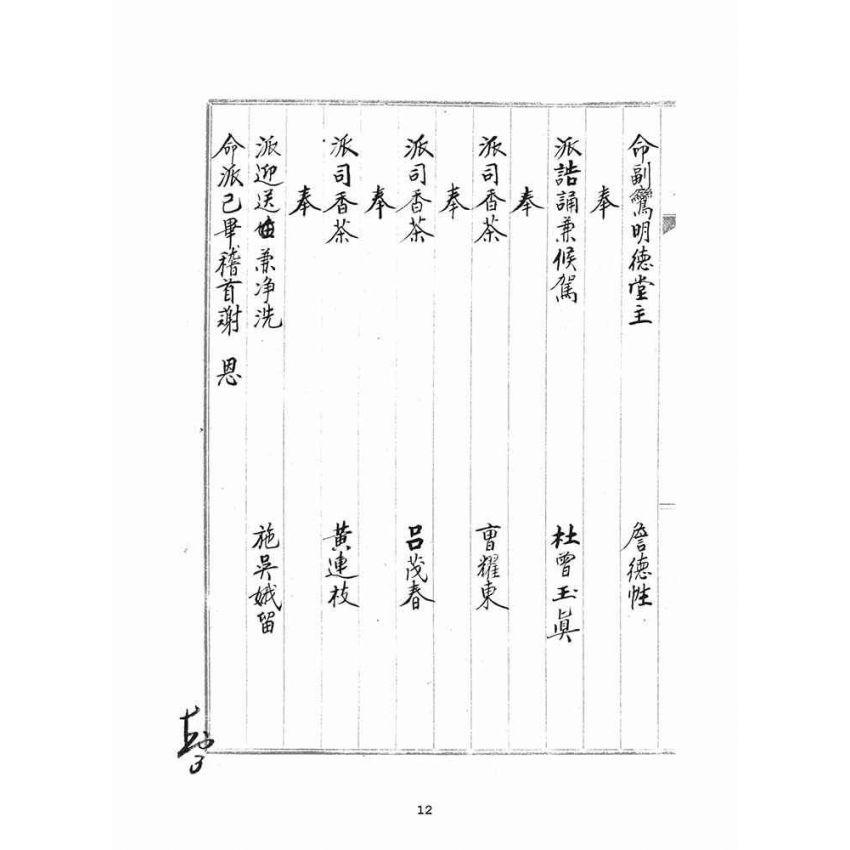 命副鸞明德堂主 詹德性
奉
派誥誦兼候駕 杜曾玉眞
奉
派司香茶 曹耀東
奉
派司香茶 呂茂春
奉
派司香茶 黃連枝
奉
派迎送 兼净洗 施吳娥留
命派已畢稽首謝 恩
12